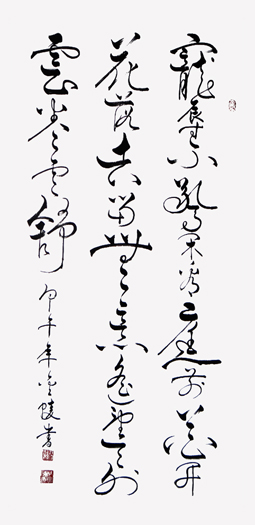 寵辱不驚閑看庭前花開
花落去留無意遙望天外
雲卷雲舒 甲午年金陵書